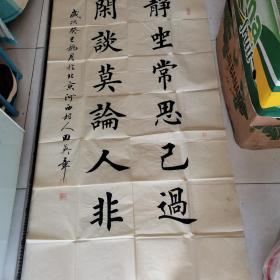 靜坐常思己過
閑談莫論人非
歲次癸巳秋月於北京河西村人田英章